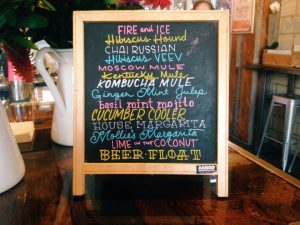 FIRE and ICE
Hibiscus Hound
CHAI RUSSIAN
Hibiscus VEEV
MOSCOW MULE
Kentucky Mule
KOMBUCHA MULE
Ginger Mint Julep
basil mint mojito
CUCUMBER COOLER
HOUSE MARGARITA
Mollie's Margarita
LIME IN THE COCONUT
BEER FLOAT